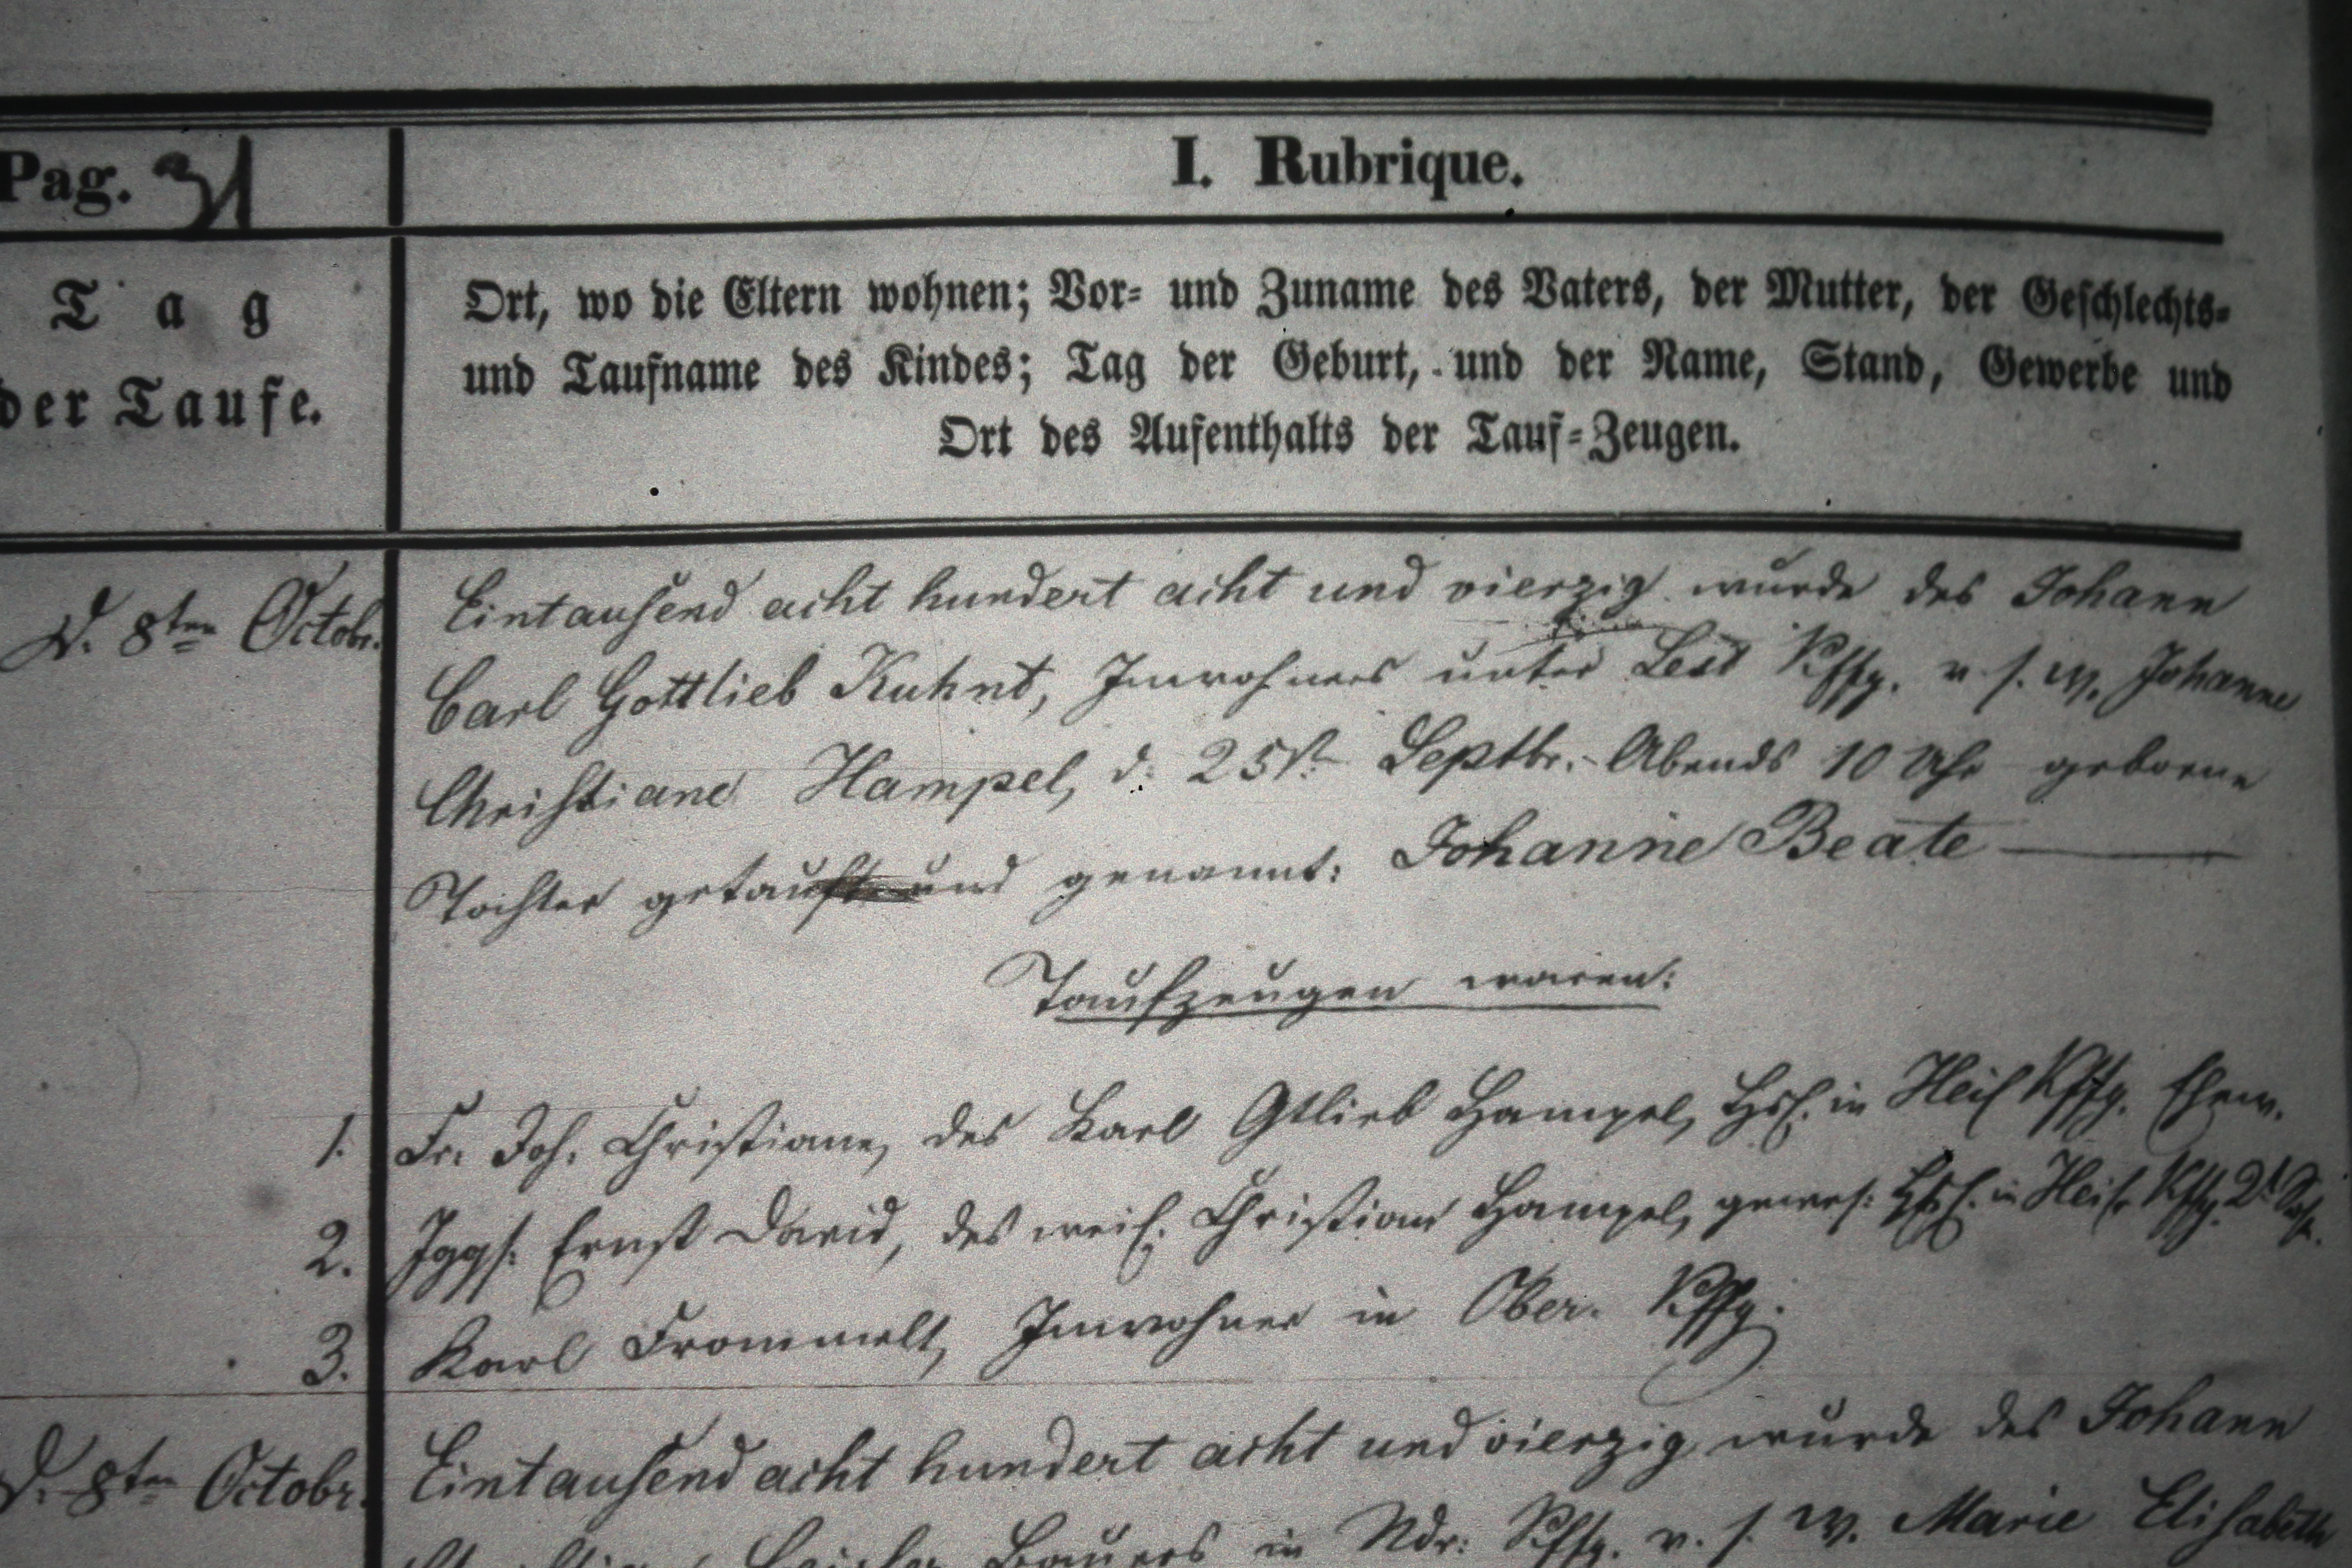 Pag. 31
I. Rubrique.
Tag
der Taufe.
Ort, wo die Eltern wohnen; Vor- und Zuname des Vaters, der Mutter, der Geschlechts-
und Taufname des Kindes; Tag der Geburt, und der Name, Stand, Gewerbe und
Ort des Aufenthalts der Tauf-Zeugen.
D. 8ten Octobr.
Eintausend acht hundert acht und vierzig wurde des Johann
Carl Gottlieb Kuhnt, Inwohners unter Kffg. v. s. W. Johanne
Christiane Hampel, d. 25st. Septbr. Abends 10 Uhr geborene
Tochter getauft und genannt: Johanne Beate
Taufzeugen waren:
1. Fr. Joh. Christiane, des Karl Gtlieb Hampel, Hsl. in Kffg. Ehew.
2. Iggs. Ernst David, des weil. Christian Hampel, gewes. Hsl. in Kffg. 2t.
3. Karl Frommelt, Inwohner in Ober. Kffg.
D. 8ten Octobr.
Eintausend acht hundert acht und vierzig wurde des Johann
Bauers in Ndr. Kffg. v. s. W. Marie Elisabeth